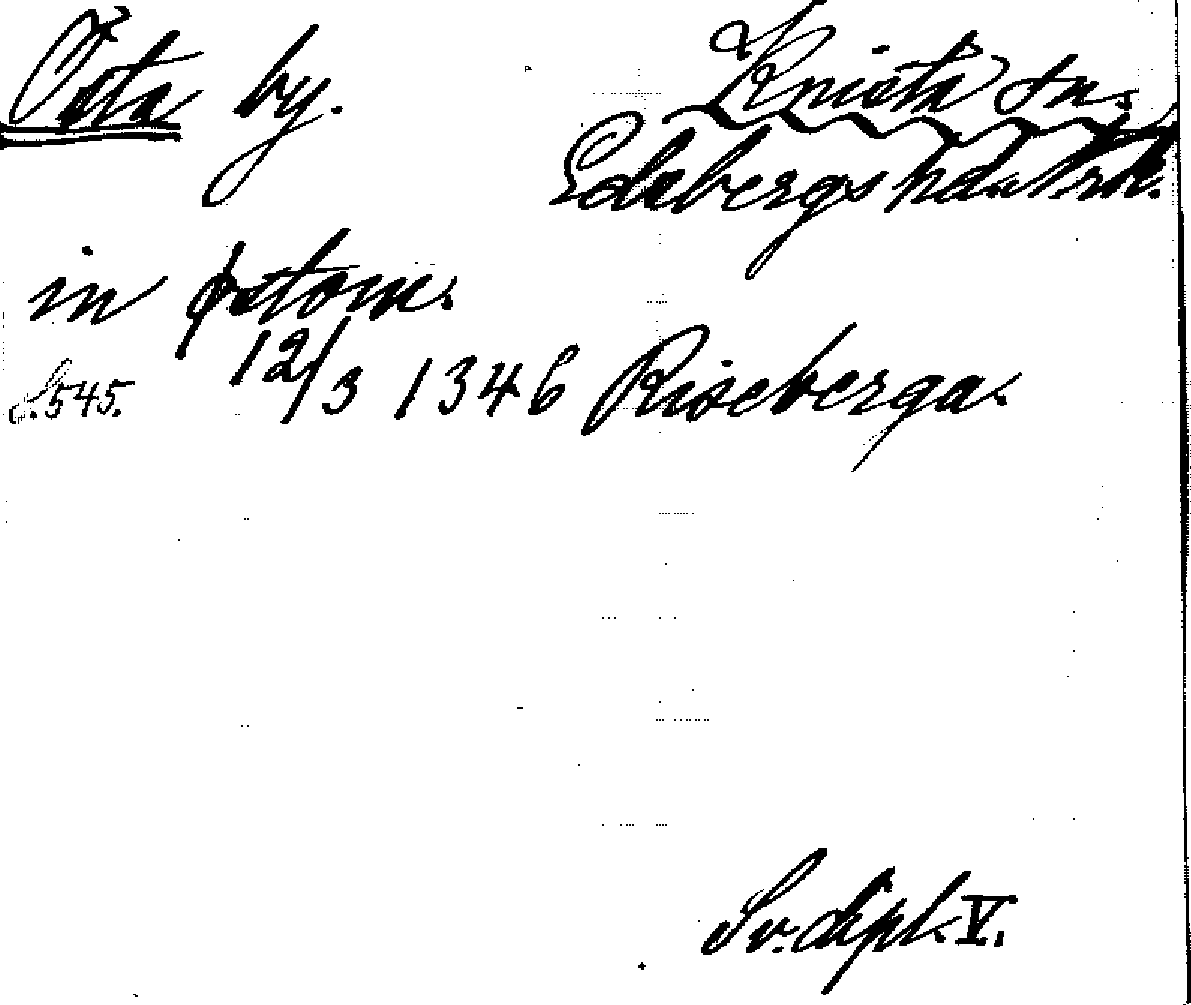 Östa by.
Knista sn.
Edsbergs hd. Nrk.
in østom.
S. 545. 12/3 1346 Riseberga.
Sv. dipl. V.